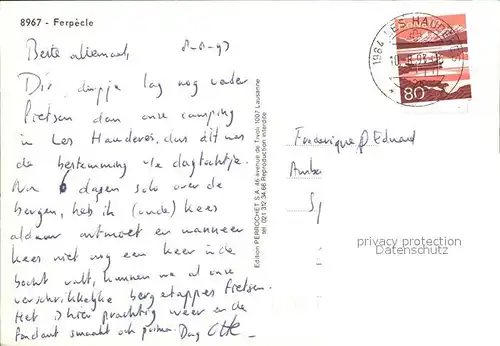 8967 - Ferpècle
Beste allemaal, 8-8-93
Dit dorpje lag nog verder
fietsen dan onze camping
in Les Haudères, dus dit was
de bestemming v/e dagtochtje.
Na 6 dagen solo over de
bergen, heb ik (oude) Kees
aldaar ontmoet en wanneer
Kees niet nog een keer in de
bocht valt, kunnen we al onze
verschrikkelijke bergetappes fietsen.
Het is hier prachtig weer en de
fondant smaakt ook prima. Dag
Edition PERROCHET S.A. 46 avenue de Tivoli 1007 Lausanne
tél. 021 312 34 66 Reproduction interdite
1984 LES HAUDERES
80
Frederique Eduard
privacy protection
Datenschutz